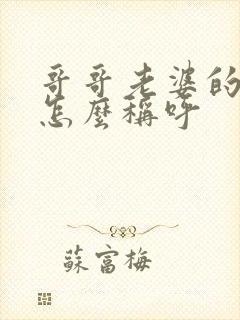 哥哥老婆的
怎麼稱呼
蘇富梅